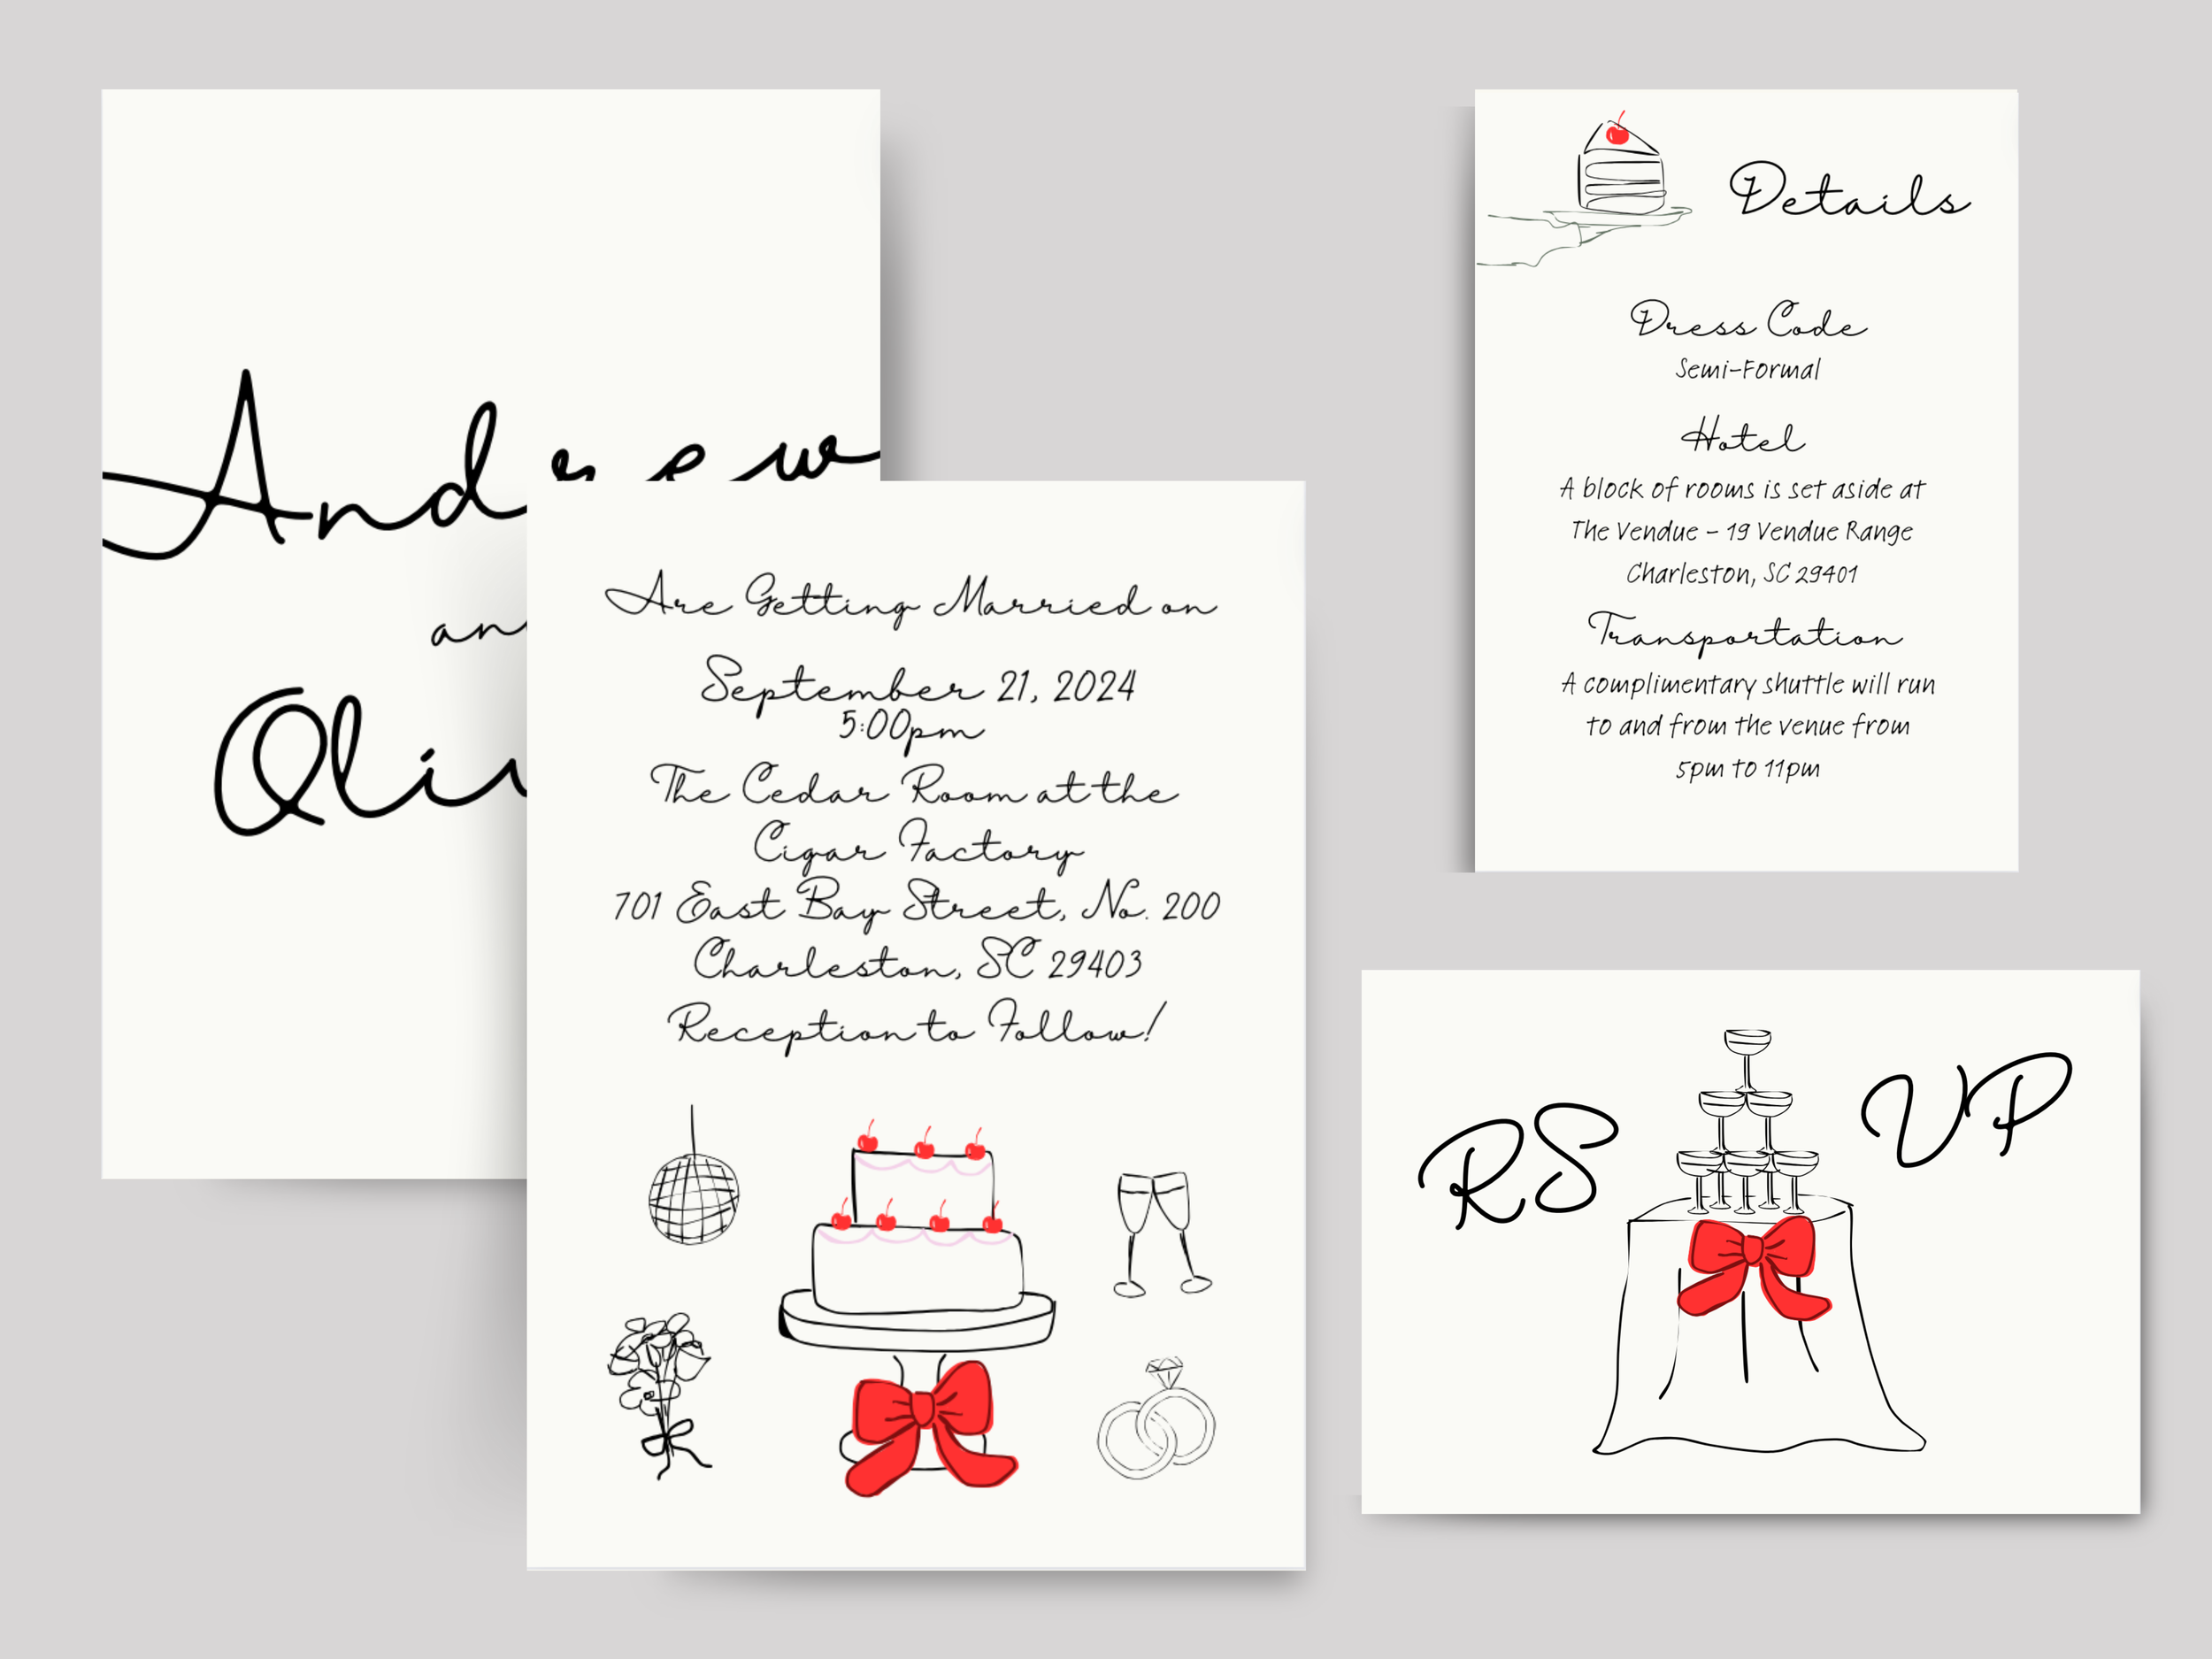 Andrew
Are Getting Married on
September 21, 2024
5:00pm
The Cedar Room at the
Cigar Factory
701 East Bay Street, No. 200
Charleston, SC 29403
Reception to Follow!
Details
Dress Code
Semi-Formal
Hotel
A block of rooms is set aside at
The Vendue - 19 Vendue Range
Charleston, SC 29401
Transportation
A complimentary shuttle will run
to and from the venue from
5pm to 11pm
RS VP